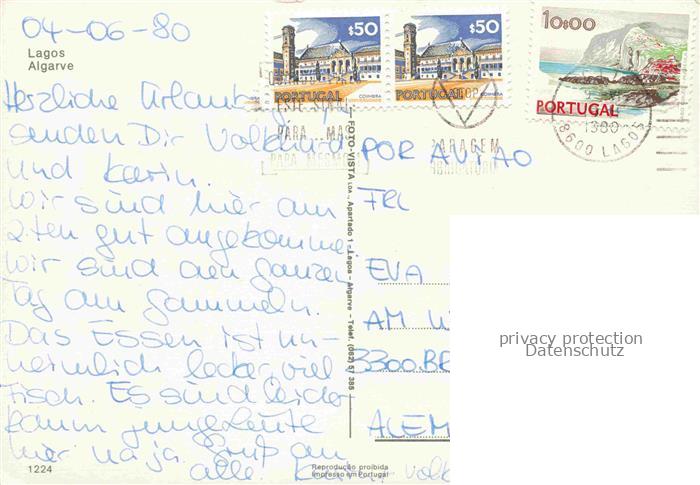 04-06-80
Lagos
Algarve
Herzliche Urlaubsgrüße
senden Dir Volkhard
und Karin.
Wir sind hier am
2ten gut angekommen
Wir sind den ganzen
Tag am gammeln.
Das Essen ist un-
heimlich lecker, viel
Fisch. Es sind leider
kaum junge Leute
hier na ja. Gruß an
alle. Karin. Volk
1224
$50
PORTUGAL
COIMBRA
$50
PORTUGAL
10$00
PORTUGAL
1980
8600 LAGOS
PARA
PARA MESMO
PARAGEM
OBRIGATÓRIA
FOTO-VISTA LDA., Apartado 1 - Lagos - Algarve - Telef. (082) 57 385
POR AVIÃO
FRL
EVA
AM W
3300 BR
ALEM
Reprodução proibida
Impresso em Portugal
privacy protection
Datenschutz